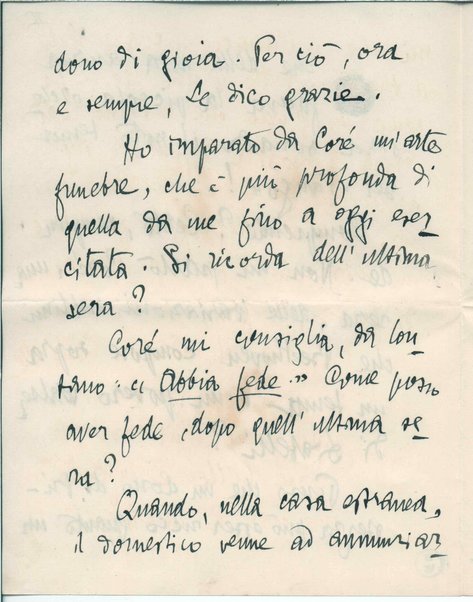 dono di gioia. Per ciò, ora
e sempre, Le dico grazie.
Ho imparato da Coré un'arte
funebre, che è più profonda di
quella da me fino a oggi eser
citata. Si ricorda dell'ultima
sera?
Coré mi consiglia, da lon
tano: «Abbia fede.» Come posso
aver fede, dopo quell'ultima se
ra?
Quando, nella casa estranea,
il domestico venne ad annunziar